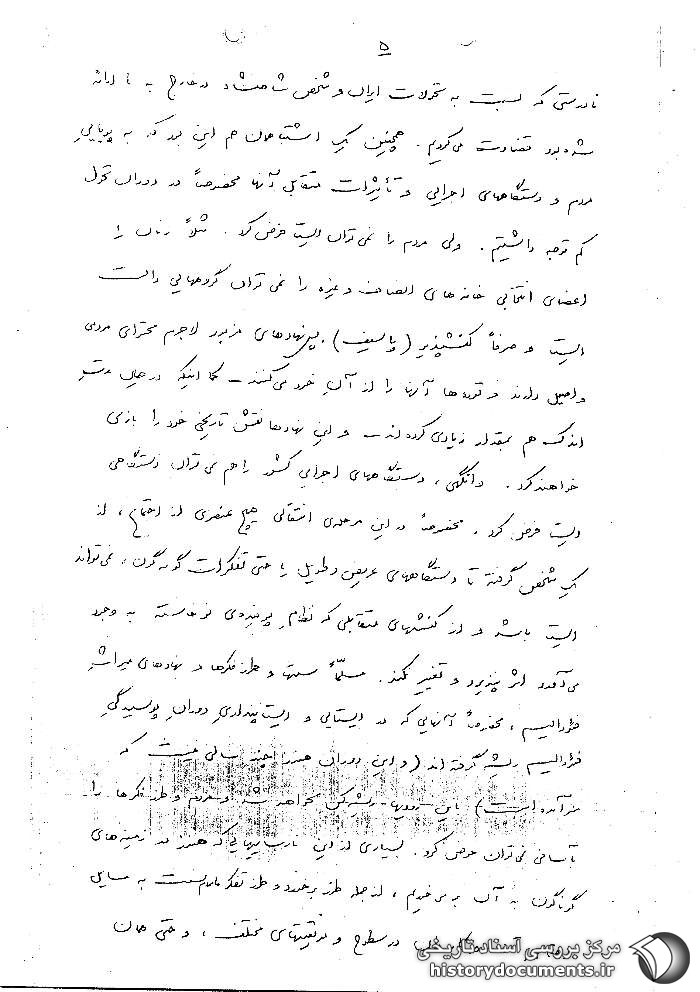 ۵
نادرستی که نسبت به تحولات ایران و شخص شاهنشاه در خارج به ما ارائه
شده بود قضاوت می‌کردیم. همچنین یک اشتباهمان هم این بود که به پویایی
مردم و دستگاههای اجرایی و تأثیرات متقابل آنها مخصوصاً در دوران تحول
کم توجه داشتیم. ولی مردم را نمی‌توان ایستا فرض کرد. مثلاً زنان را
اعضای انتخابی خانه‌های انصاف و غیره را نمی‌توان گروههایی دانست
ایستا و صرفاً کنش‌پذیر (پاسیف). نهادهای مزبور لاجرم محتوای مردمی
و اصیل دارند و توده‌ها آنها را از آن خود می‌کنند - کما اینکه در همین مدت
اندک هم بمقدار زیادی کرده‌اند - و این نهادها نقش تاریخی خود را بازی
خواهند کرد. وانگهی، دستگاههای اجرایی کشور را هم نمی‌توان دستگاهی
ایستا فرض کرد. مخصوصاً در این مرحله‌ی انتقالی هیچ عنصری از اجتماع، از
یک شخص گرفته تا دستگاههای عریض و طویل یا حتی تفکرات گونه‌گون، نمی‌تواند
ایستا باشد و از کنشهای متقابلی که نظام پوینده‌ی نوخاسته به وجود
می‌آورد اثر نپذیرد و تغییر نکند. مسلماً سنتها و طرز فکرها و نهادهای میراث
فئودالیسم، مخصوصاً آنهایی که در ایستایی و ایست‌پنداری دوران پوسیدگی
فئودالیسم ریشه گرفته‌اند (و این دوران هنوز چند سالی نیست که
سر آمده است) باین زودیها ریشه‌کن نخواهد شد و مردم و طرز فکرها را
بآسانی نمی‌توان عوض کرد. بسیاری از این نارساییهایی که هنوز در زمینه‌های
گوناگون به آن بر می‌خوریم، از جمله طرز برخورد و طرز تفکر نسبت به مسایل
در سطوح و موقعیتهای مختلف، و حتی همان
مرکز بررسی اسناد تاریخی
historydocuments.ir